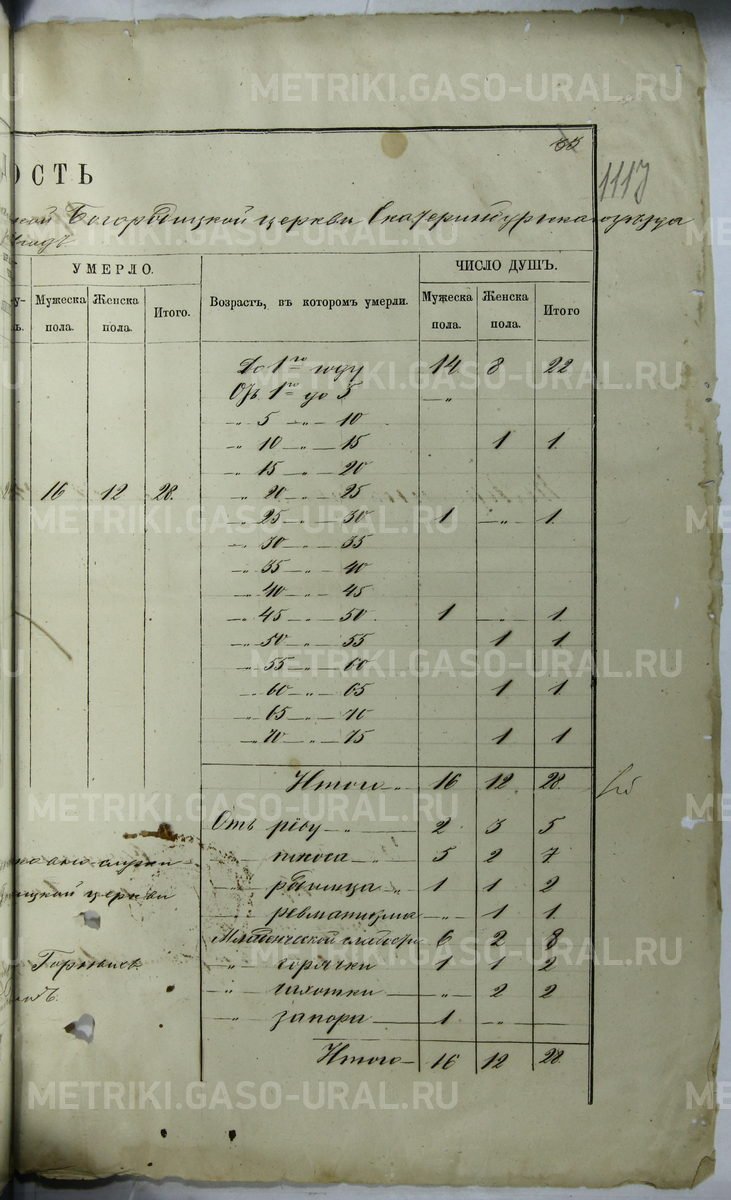 METRIKI.GASO-URAL.RU METRIKI.GASO-URAL.RU
55
1117
ОСТЬ
Богородицкой церкви Екатеринбургскаго уѣзда
УМЕРЛО. ЧИСЛО ДУШЪ.
Мужеска пола. Женска пола. Итого. Возрастъ, въ которомъ умерли. Мужеска пола. Женска пола. Итого
До 1го году 14 8 22
Отъ 1го до 5 —„—
„ 5 — „ — 10
„ 10 — „ — 15 1 1.
„ 15 — „ — 20
16 12 28. „ 20 — „ — 25
„ 25 — „ — 30 1 —„— 1.
„ 30 — „ — 35
„ 35 — „ — 40
„ 40 — „ — 45
„ 45 — „ — 50 1 —„— 1.
„ 50 — „ — 55 1 1
„ 55 — „ — 60
„ 60 — „ — 65 1 1.
„ 65 — „ — 70
„ 70 — „ — 75 1 1
Итого „ 16 12 28.
Отъ рѣзу — „ — 2 3 5
„ поноса „ 5 2 7
„ родимца „ 1 1 2
ицкой церкви
„ ревматизма —„— 1 1.
Младенческой слабости 6 2 8
„ горячки 1 1 2
„ чахотки —„— 2 2
„ запора 1 —„—
Итого 16 12 28.